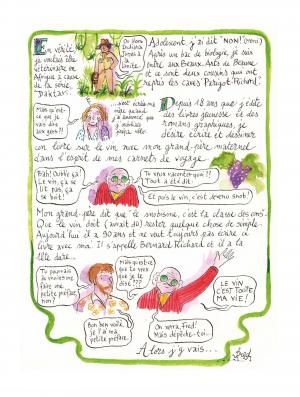 En vérité,
je voulais être
vétérinaire en
Afrique à cause
de la série
"Daktari".
Ou alors
Indiana
Jones à
la
limite...
Adolescent, j'ai dit "NON!" (merci)
Après un bac de biologie, je suis
entré aux Beaux-Arts de Beaune
et ce sont deux cousins qui ont
repris les caves Perijot-Richard.
Mais qu'est-
ce que je
vais dire
aux gens?!
Depuis 18 ans que j'écris
des livres jeunesse et des
Romans graphiques, je
désire écrire et dessiner
un livre sur le vin avec mon grand-père maternel
dans l'esprit de mes carnets de voyage.
Bah! Oublie ça!
Le vin, ça se
dit pas, ça
se boit!
Tu veux raconter quoi?!
Tout a été dit.
Et puis le vin, c'est devenu snob!
Mon grand-père dit que "le snobisme, c'est la classe des cons".
Que le vin doit (avait dû) rester quelque chose de simple.
Aujourd'hui il a 90 ans et ne veut toujours pas écrire ce
livre avec moi. Il s'appelle Bernard Richard et il a la
tête dure...
Tu pourrais
au moins me
faire une
petite préface,
non?
Mais qu'est-ce
que tu veux
que je te
dise???
LE VIN
C'EST TOUTE
MA VIE!
Bon ben voilà,
je l'ai ma
petite préface.
On verra, Fred!
Mais dépêche-toi...
Alors j'y vais...